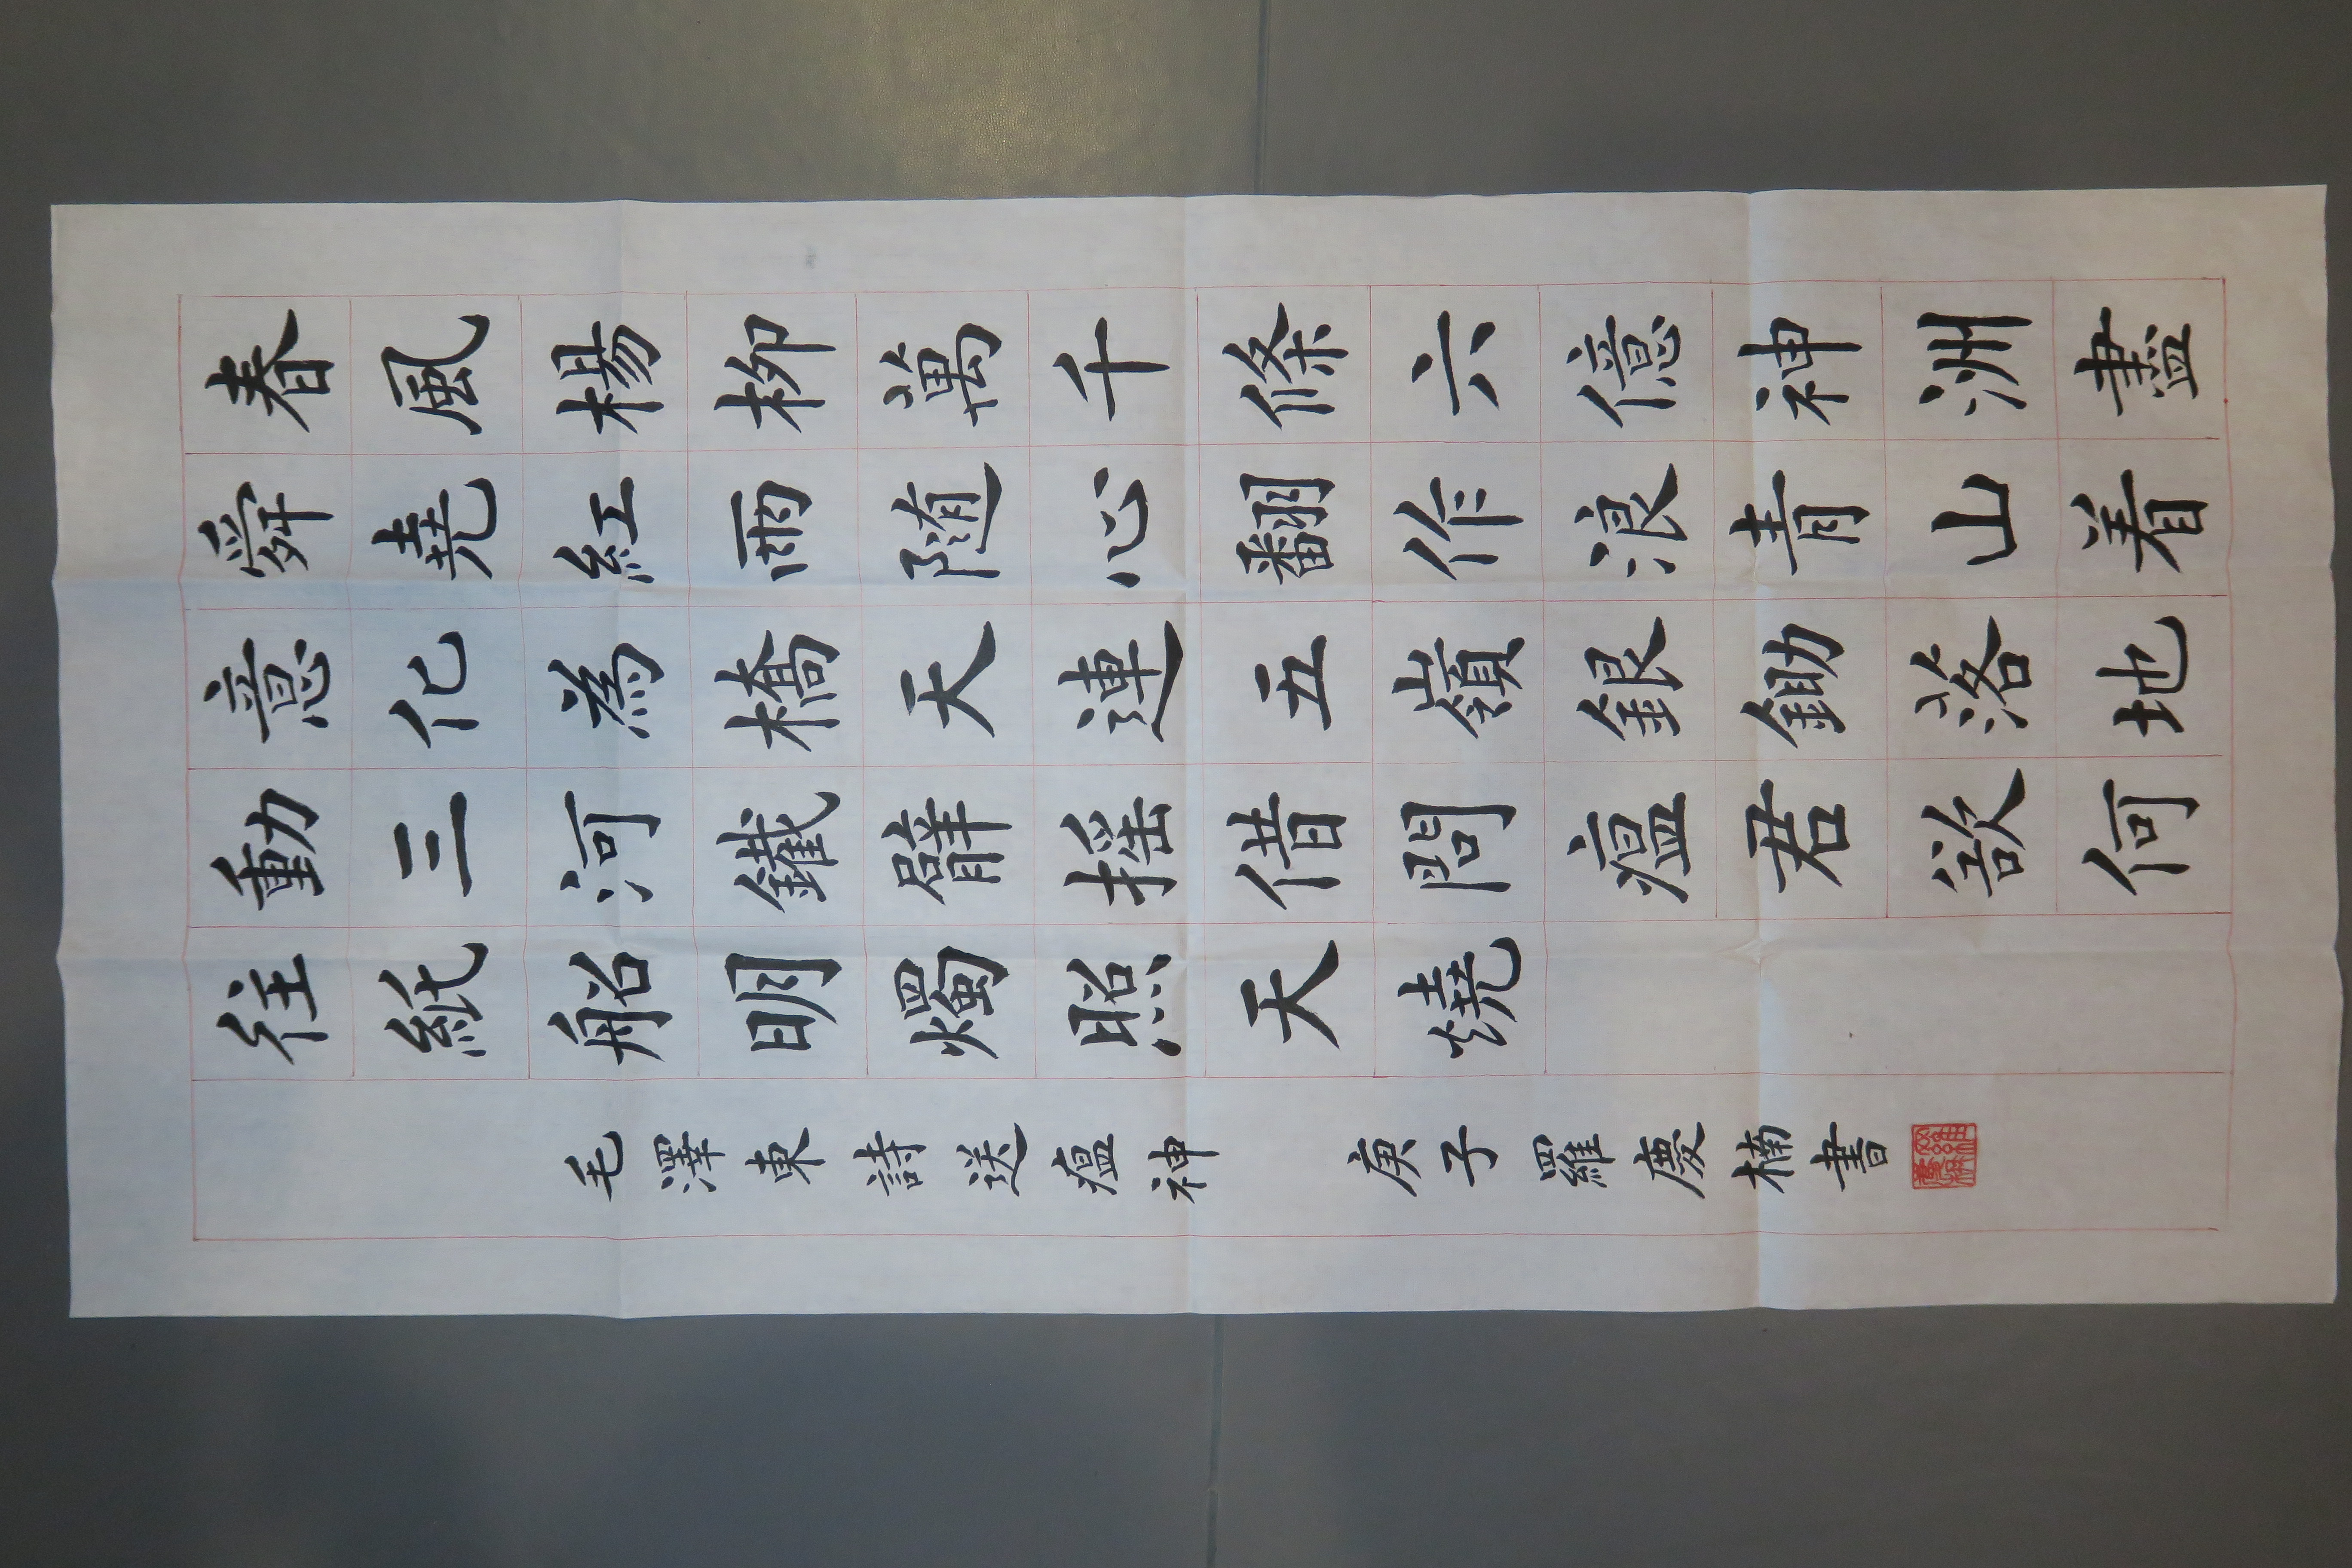 春風楊柳萬千條六億神洲盡
舜堯紅雨随心翻作浪青山着
意化為橋天連五嶺銀鋤落地
動三河鐵臂揺借問瘟君欲何
往紙船明燭照天燒
毛澤東詩送瘟神 庚子羅慶楠書